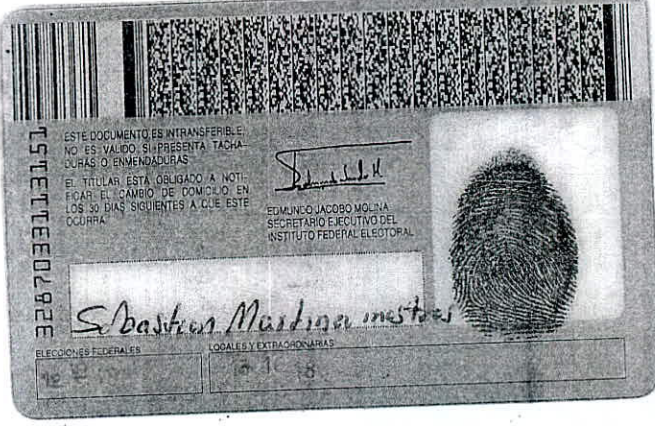 3287033113151
ESTE DOCUMENTO ES INTRANSFERIBLE,
NO ES VALIDO SI PRESENTA TACHA-
DURAS O ENMENDADURAS
EL TITULAR ESTÁ OBLIGADO A NOTI-
FICAR EL CAMBIO DE DOMICILIO EN
LOS 30 DIAS SIGUIENTES A QUE ESTE
OCURRA
EDMUNDO JACOBO MOLINA
SECRETARIO EJECUTIVO DEL
INSTITUTO FEDERAL ELECTORAL
ELECCIONES FEDERALES
LOCALES Y EXTRAORDINARIAS